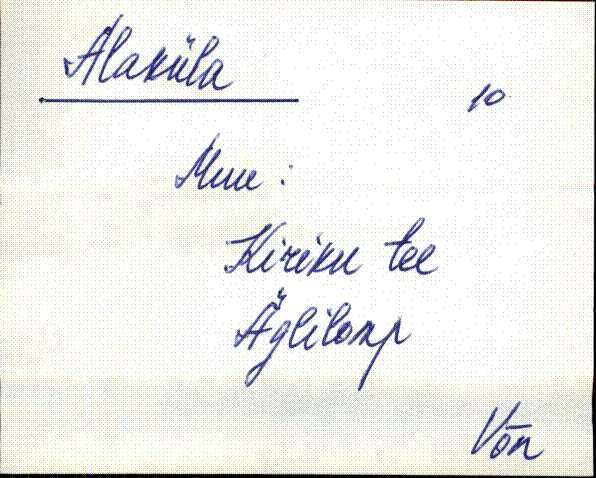 Alaküla
10
Muu:
Kiriku tee
Äglilomp
Võn